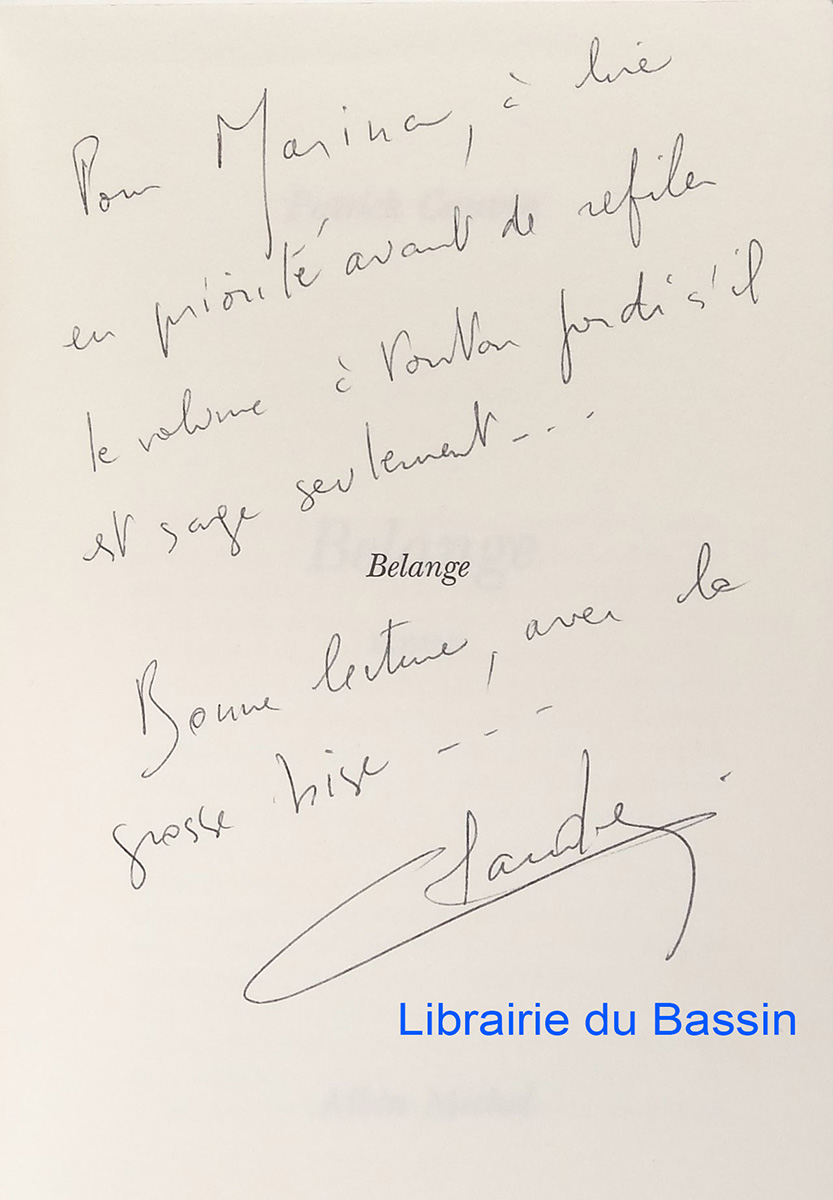 Pour Marina, à lire
en priorité avant de refiler
le volume à Tonton Jordi s'il
est sage seulement...
Belange
Bonne lecture, avec la
grosse bise ...
Claude
Librairie du Bassin